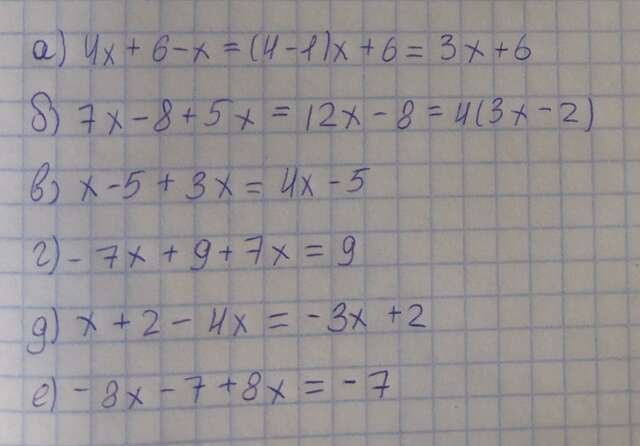 а) 4x + 6 - x = (4 - 1)x + 6 = 3x + 6
б) 7x - 8 + 5x = 12x - 8 = 4(3x - 2)
в) x - 5 + 3x = 4x - 5
г) - 7x + 9 + 7x = 9
д) x + 2 - 4x = -3x + 2
е) - 8x - 7 + 8x = - 7